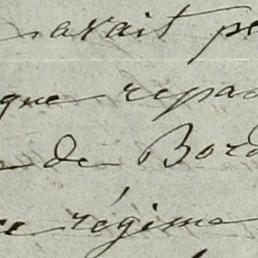 avait pe
que repa
de Bord
ce régime